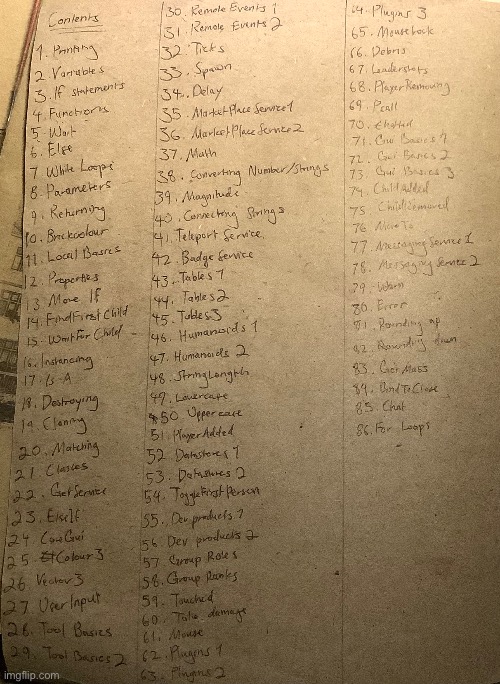 Contents
1. Printing
2. Variables
3. If statements
4. Functions
5. Wait
6. Else
7. While Loops
8. Parameters
9. Returning
10. Brickcolour
11. Local Basics
12. Properties
13 More If
14. FindFirstChild
15. WaitForChild
16. Instancing
17. Is-A
18. Destroying
19. Cloning
20. Matching
21. Classes
22. GetService
23. ElseIf
24 CoreGui
25 Colour3
26 Vector3
27. UserInput
28. Tool Basics
29. Tool Basics 2
30. Remote Events 1
31. Remote Events 2
32. Ticks
33. Spawn
34. Delay
35. MarketPlace Service 1
36. MarketPlace Service 2
37. Math
38. Converting Number/Strings
39. Magnitude
40. Connecting Strings
41. Teleport Service
42. Badge Service
43. Tables 1
44. Tables 2
45. Tables 3
46. Humanoids 1
47. Humanoids 2
48. StringLength
49. Lowercase
50 Uppercase
51. PlayerAdded
52 Datastores 1
53. Datastores 2
54. ToggleFirstPerson
55. Dev products 1
56. Dev products 2
57 Group Roles
58. Group Ranks
59. Touched
60. Take damage
61. Mouse
62. Plugins 1
63. Plugins 2
64. Plugins 3
65. Mouselock
66. Debris
67. Leaderstats
68. PlayerRemoving
69. Pcall
70. Chatted
71. Gui Basics 1
72. Gui Basics 2
73. Gui Basics 3
74. ChildAdded
75 ChildRemoved
76 MoveTo
77. Messaging Service 1
78. Messaging Service 2
79. Warn
80. Error
81. Rounding up
82. Rounding down
83. GetMass
84. BindToClose
85. Chat
86. For Loops
imgflip.com